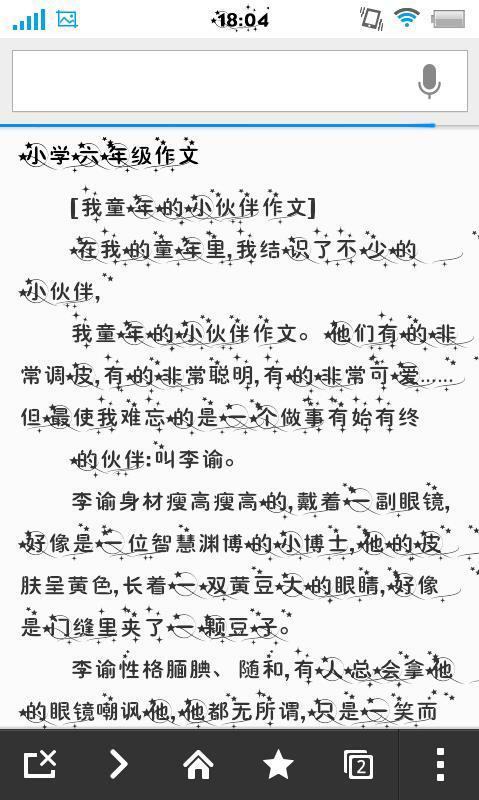 18:04
小学六年级作文
[我童年的小伙伴作文]
在我的童年里,我结识了不少的
小伙伴,
我童年的小伙伴作文。他们有的非
常调皮,有的非常聪明,有的非常可爱……
但最使我难忘的是一个做事有始有终
的伙伴:叫李谕。
李谕身材瘦高瘦高的,戴着一副眼镜,
好像是一位智慧渊博的小博士,他的皮
肤呈黄色,长着一双黄豆大的眼睛,好像
是门缝里夹了一颗豆子。
李谕性格腼腆、随和,有人总会拿他
的眼镜嘲讽他,他都无所谓,只是一笑而
2